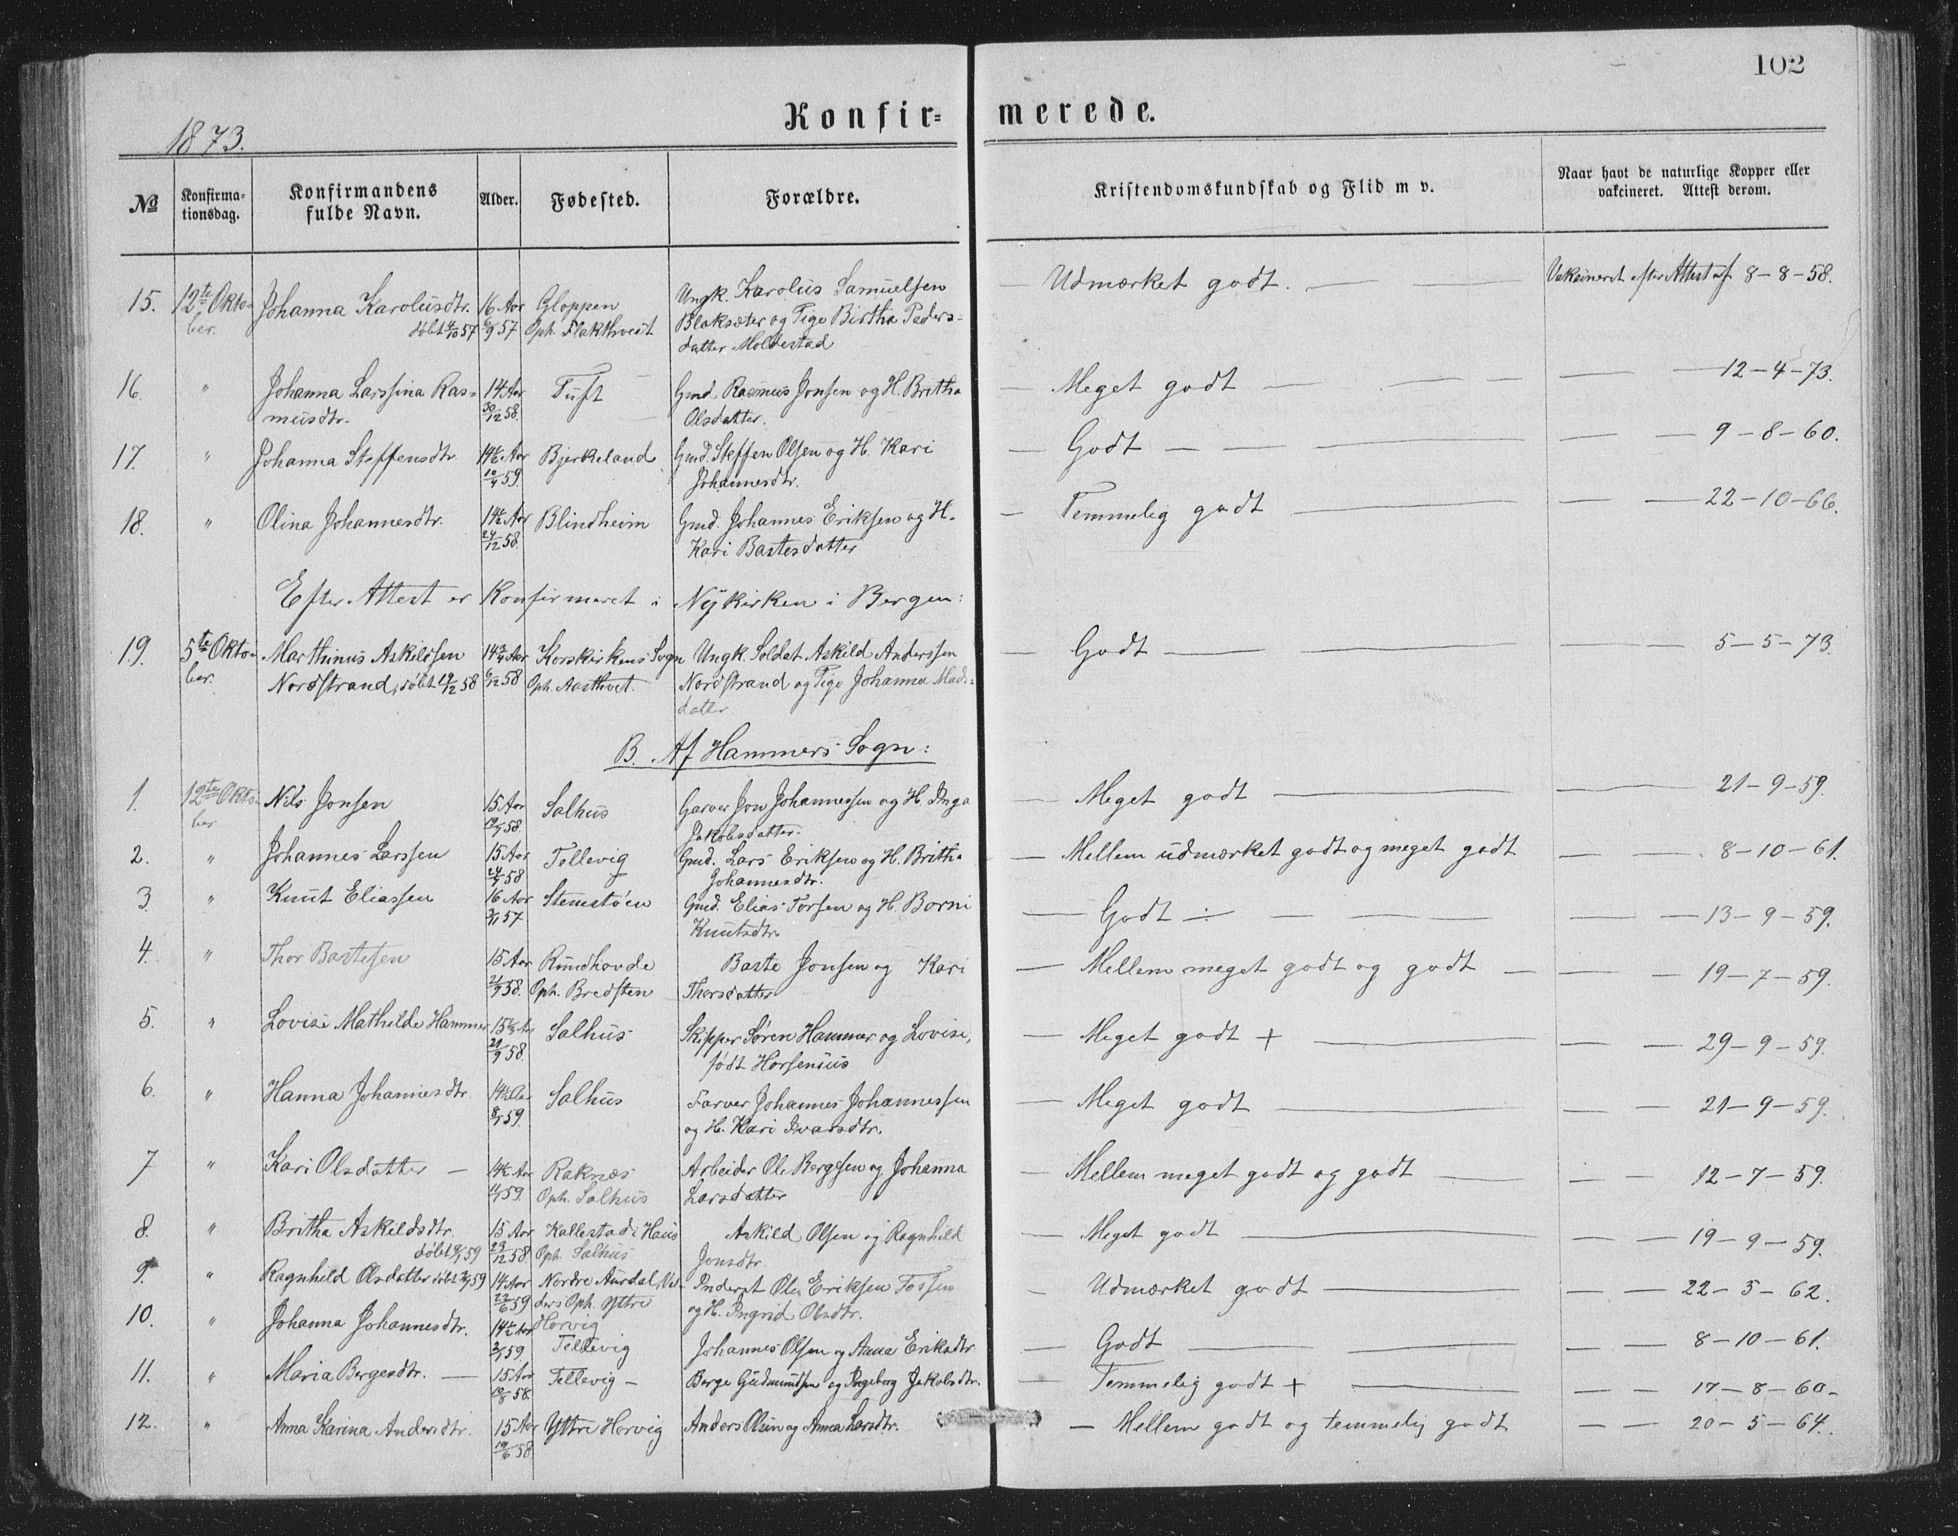 102
Konfirmerede.
1873.
№ Konfirmationsdag. Konfirmandens fulde Navn. Alder. Fødested. Forældre. Kristendomskundskab og Flid m v. Naar havt de naturlige Kopper eller vakcineret. Attest derom.
15. 12te Okto- Johanna Karolusdtr. 16 Aar Gloppen Ungk. Karolus Samuelsen Udmærket godt. Vakcineret efter Attest af 8-8-58.
ber. døbt 57 57 Oph. Flakthveit Blaksæter og Pige Birtha Peders-
datter Moldestad
16. " Johanna Larsina Ras- 14 Aar Tuft Gmd. Rasmus Jonsen og H. Britha Meget godt 12-4-73.
musdtr. 30/12 58. Olsdatter.
17. " Johanna Steffensdtr 14½ Aar Bjerkeland Gmd. Steffen Olsen og H. Kari Godt 9-8-60.
59. Johannesdtr.
18. " Olina Johannesdtr. 14½ Aar Blindheim Gmd. Johannes Eriksen og H. Temmelig godt 22-10-66.
/12 58. Kari Bastesdatter
Efter Attest er Konfirmeret i Nykirken i Bergen:
19. 5te Okto- Marthinus Askildsen 14¾ Aar Korskirkens Sogn Ungk. Soldat Askild Anderssen Godt 5-5-73.
ber. Nordstrand, døbt 19/12 58 6/12 58 Oph. Aasthvet. Nordstrand og Pige Johanna Mads-
datter
B. Af Hammers Sogn:
1. 12te Okto- Nils Jonsen 15 Aar Salhus Garver Jon Johannessen og H. Inga Meget godt 21-9-59.
ber 58. Jakobsdatter.
2. " Johannes Larssen 15 Aar Tellevig Gmd. Lars Eriksen og H. Britha Mellem udmærket godt og meget godt 8-10-61.
58 Johannesdtr.
3 " Knut Eliassen 16 Aar Stenestøen Gmd. Elias Torsen og H. Borni Godt 13-9-59.
57 Knutsdtr.
4. " Thor Bastesen 15 Aar Rundhovde Baste Jonsen og Kari Mellem meget godt og godt 19-7-59.
58. Oph. Bredsten Thorsdatter
5. " Lovise Mathilde Hammer Salhus Skipper Søren Hammer og Lovise, Meget godt + 29-9-59.
58. født Horsenius
6. " Hanna Johannesdtr. Salhus Farver Johannes Johannessen Meget godt 21-9-59.
59. og H. Kari Ivarsdtr.
7 " Kari Olsdatter 14½ Aar Raknæs Arbeider Ole Bergesen og Johanna Mellem meget godt og godt 12-7-59.
59. Oph. Salhus Larsdatter
8. " Britha Askildsdtr. 15 Aar Kallestad i Haus Askild Olsen og Ragnhild Meget godt 19-9-59.
døbt 59 /12 58 Oph. Salhus Jonsdtr.
9. " Ragnhild Olsdatter døbt 59 14 Aar Nordre Aurdal, Val- Inderst Ole Eriksen Fossen Udmærket godt 22-5-62.
59 ders Oph. Yttre og H. Ingrid Olsdtr.
Horvig
10. " Johanna Johannesdtr. 14½ Aar Tellevig Johannes Olsen og Anna Eriksdtr Godt 8-10-61.
59.
11. " Maria Bergesdtr. 15 Aar Tellevig Berge Gudmundsen og Ingeborg Jakobsdtr. Temmelig godt + 17-8-60
58.
12. " Anna Karina Andersdtr. 15 Aar Yttre Horvig Anders Olsen og Anna Larsdtr. Mellem godt og temmelig godt 20-5-64.
58.